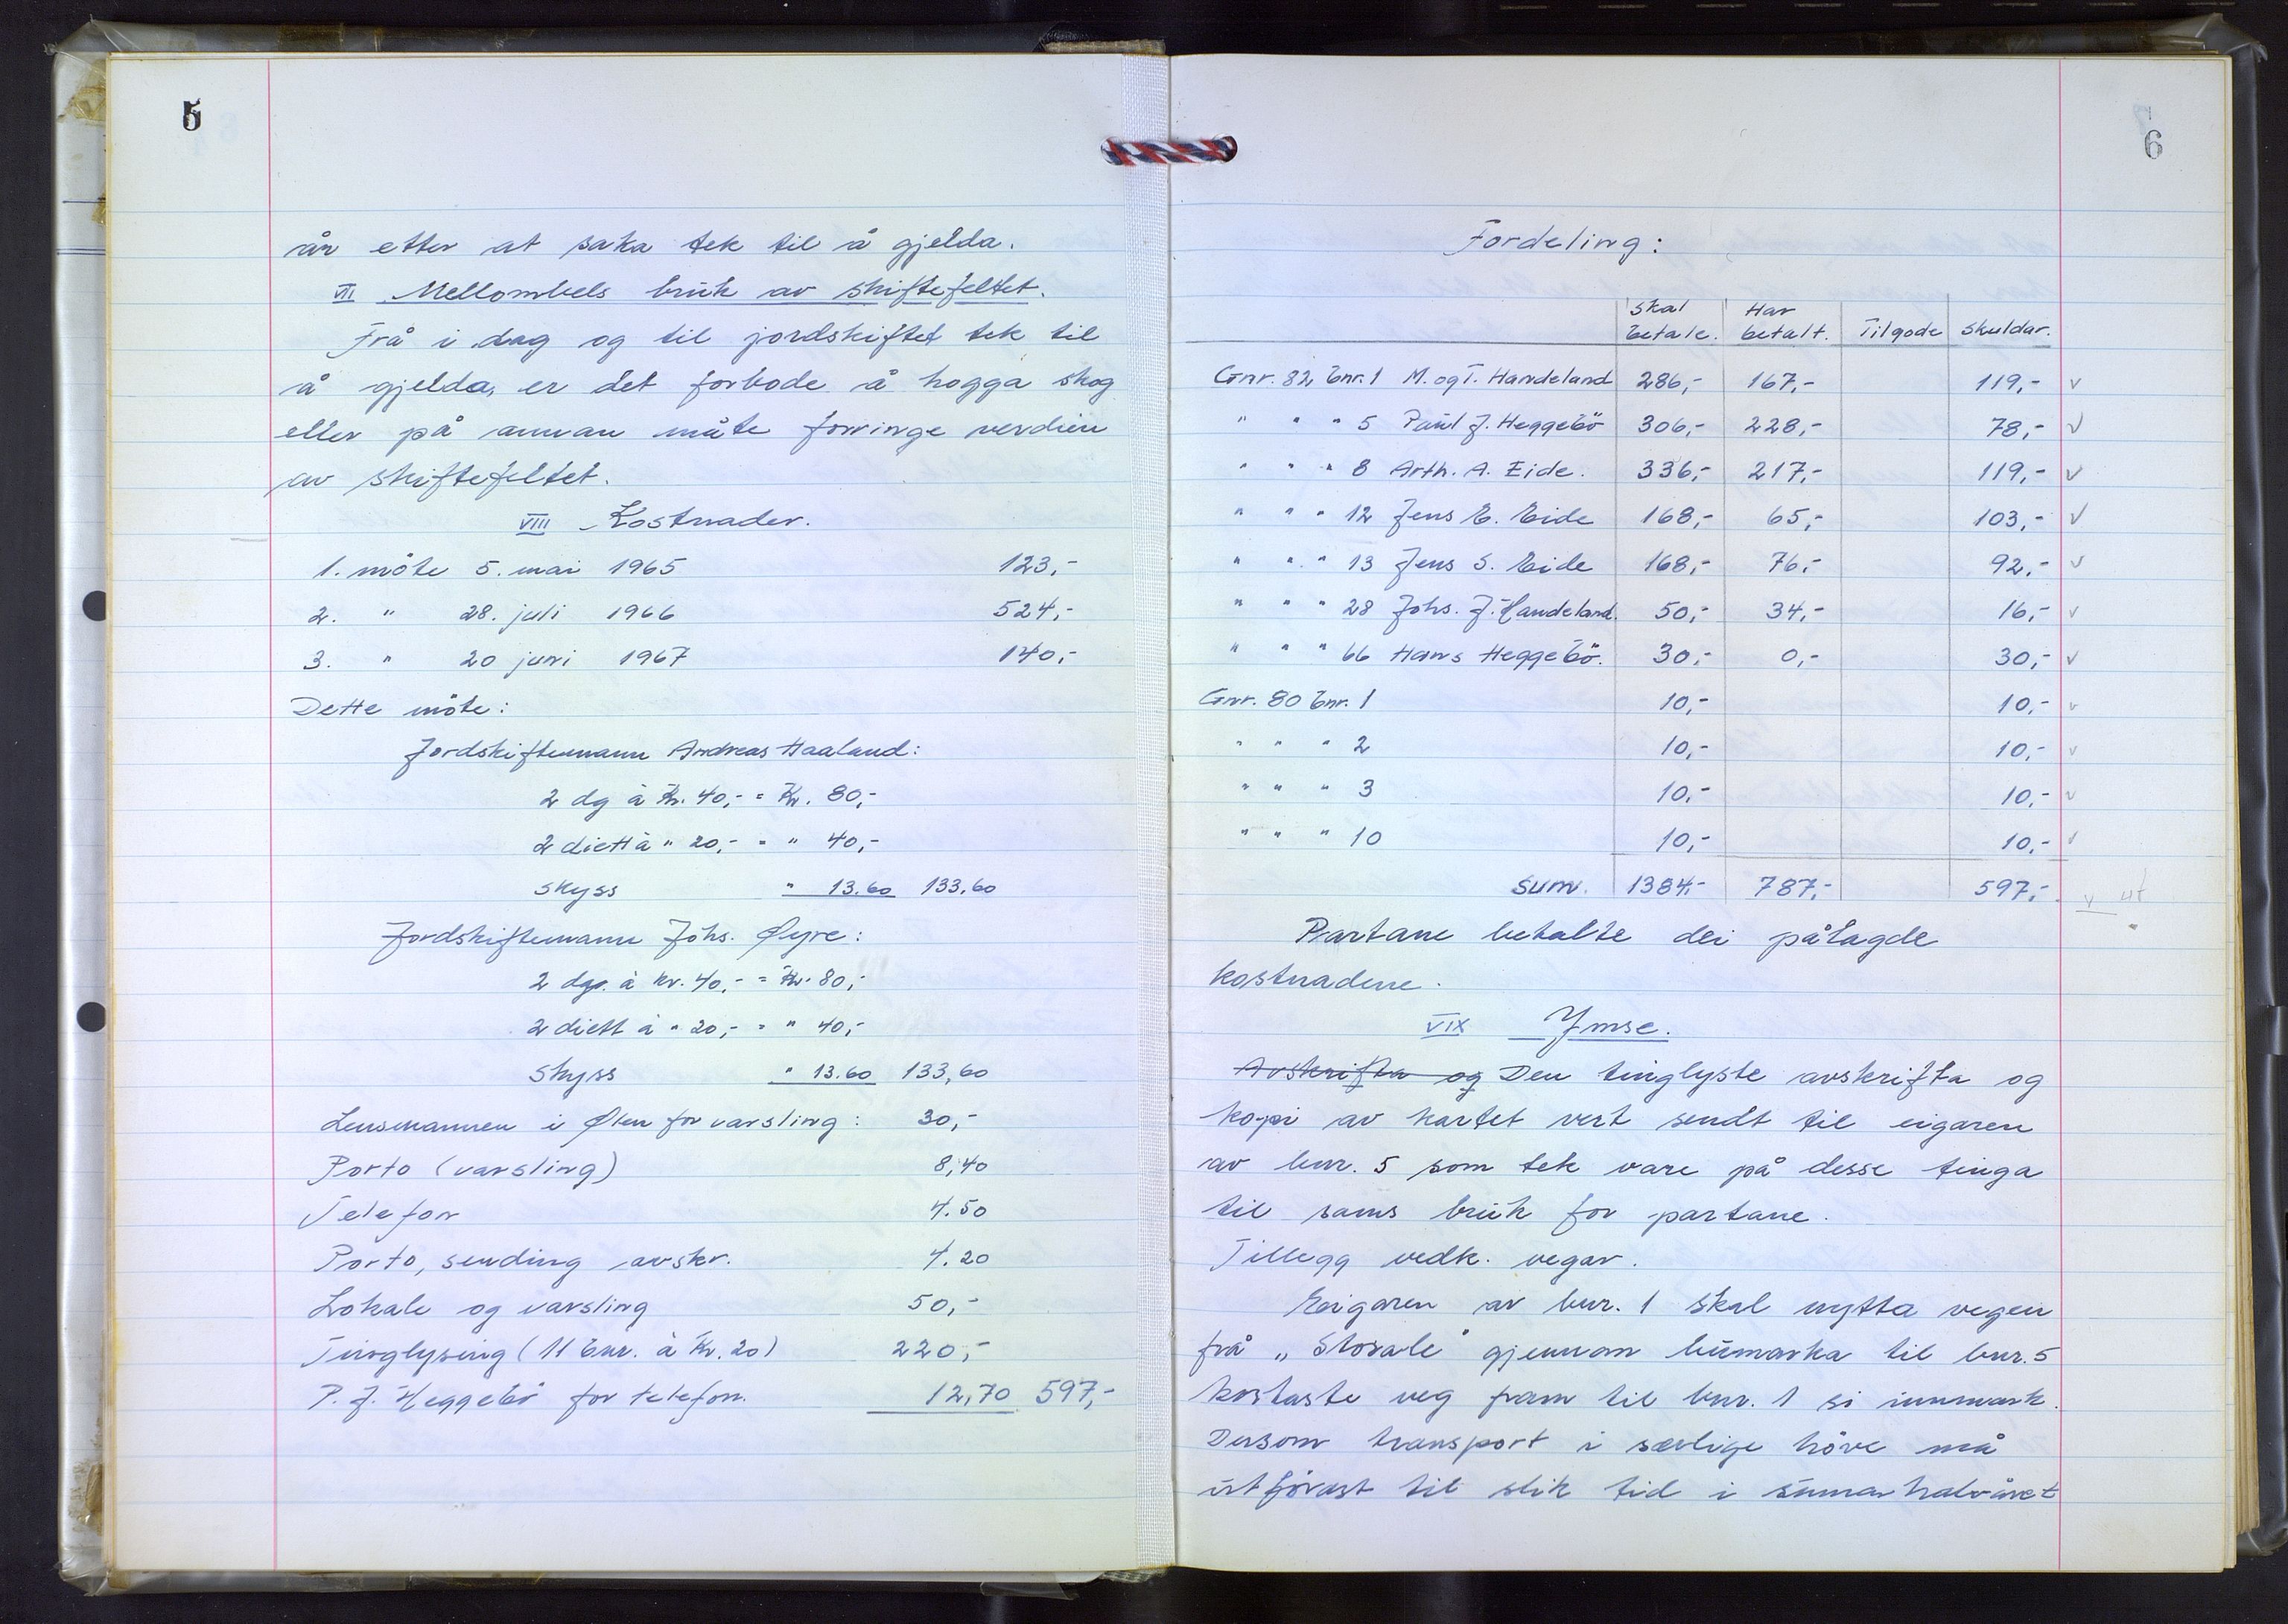 5
år etter at saka tek til å gjelda.
VII Mellombels bruk av skiftefeltet.
Frå i dag og til jordskiftet tek til
å gjelda, er det forbode å hogga skog
eller på annan måte forringe verdien
av skiftefeltet.
VIII Kostnader.
1. möte 5. mai 1965 123,-
2. " 28. juli 1966 524,-
3. " 20 juni 1967 140,-
Dette möte:
Jordskiftemann Andreas Haaland:
2 dg à Kr. 40,- = Kr. 80,-
2 diett à " 20,- = " 40,-
Skyss " 13.60 133,60
Jordskiftemann Johs. Øyre:
2 dgr. à kr. 40,- = Kr. 80,-
2 diett à " 20,- = " 40,-
Skyss " 13.60 133,60
Lensmannen i Ølen for varsling: 30,-
Porto (varsling) 8,40
Telefon 4.50
Porto, sending avskr. 4.20
Lokale og varsling 50,-
Tinglysing (11 bnr. à Kr. 20) 220,-
P. J. Heggebö for telefon. 12,70 597,-
6
Fordeling:
Skal betale. Har betalt. Tilgode Skuldar.
Gnr. 82 bnr. 1 M. og T. Handeland 286,- 167,- 119,- v
" " " 5 Paul J. Heggebö 306,- 228,- 78,- v
" " " 8 Arth. A. Eide. 336,- 217,- 119,- v
" " " 12 Jens E. Eide 168,- 65,- 103,- v
" " " 13 Jens S. Eide 168,- 76,- 92,- v
" " " 28 Johs. J. Handeland. 50,- 34,- 16,- v
" " " 66 Hans Heggebö. 30,- 0,- 30,- v
Gnr. 80 bnr. 1 10,- 10,- v
" " " 2 10,- 10,- v
" " " 3 10,- 10,- v
" " " 10 10,- 10,- v
Sum. 1384,- 787,- 597,- v
Partane betalte dei pålagde
kostnadene.
VIX Ymse.
Avskrifta og Den tinglyste avskrifta og
kopi av kartet vert sendt til eigaren
av bnr. 5 som tek vare på desse tinga
til sams bruk for partane.
Tillegg vedk. vegar.
Eigaren av bnr. 1 skal nytta vegen
frå "Storale" gjennom bumarka til bnr. 5
kortaste veg fram til bnr. 1 si innmark.
Dersom transport i særlige höve må
utförast til slik tid i sumarhalvåret